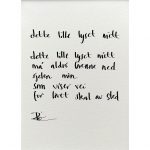 dette lille lyset mitt
dette lille lyset mitt
må aldri brenne ned
sjelen min
som viser vei
for livet skal av sted